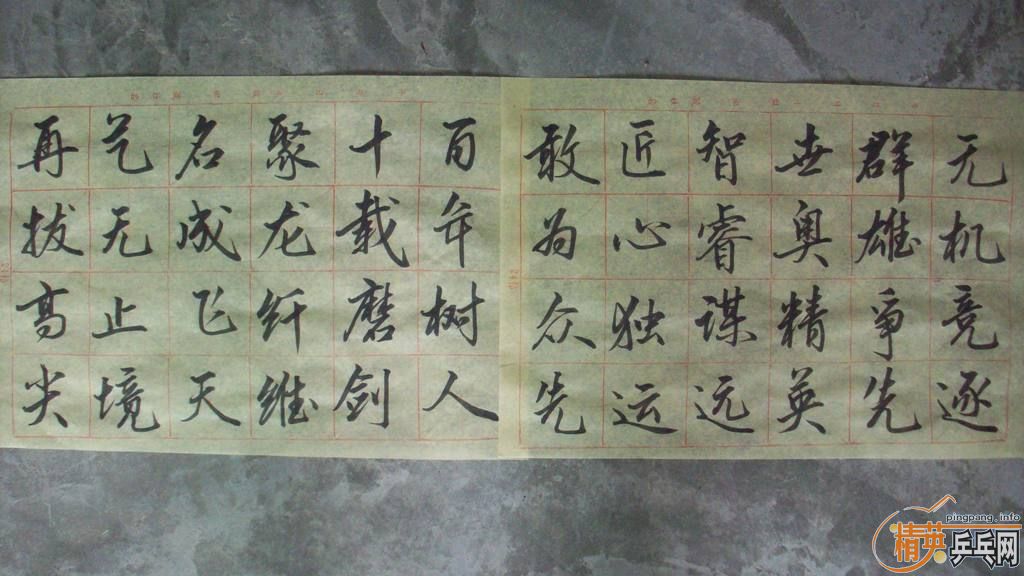 无机竞逐
群雄争先
世奥精英
智睿谋远
匠心独运
敢为众先
百年树人
十载磨剑
聚龙纤维
名成飞天
艺无止境
再拔高尖
pingpang.info
精英乒乓网